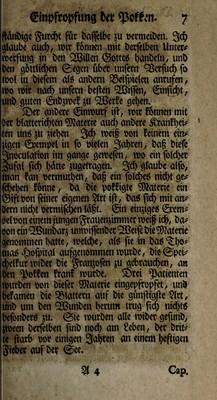 Einpfropfung der Pokken. 7
ständige Furcht für dasselbe zu vermeiden. Ich
glaube auch, wir können mit derselben Unter-
werfung in den Willen Gottes handeln, und
den göttlichen Segen über unsern Versuch so
wol in diesem als andern Beispielen anrufen,
wo wir nach unsern besten Wissen, Einsicht,
und guten Endzwek zu Werke gehen.
Der andere Einwurf ist, wir können mit
der blatterichten Materie auch andere Krankhei-
ten uns zu ziehen Ich weiß von keinem ein-
zigen Exempel in so vielen Jahren, daß diese
Inoculation im gange gewesen, wo ein solcher
Zufal sich hätte zugetragen. Ich glaube also,
man kan vermuhten, daß ein solches nicht ge-
schehen könne, da die pokkigte Materie ein
Gift von seiner eigenen Art ist, das sich mit an-
dern nicht vermischen läßt. Ein einzges Exem-
pel von einem jungen Frauenzimmer weiß ich, da-
von ein Wundarz unwissender Weise die Materie
genommen hatte, welche, als sie in das Tho-
mas Hospital aufgenommen wurde, die Spei-
chelkur wider die Franzosen zu gebrauchen, an
den Pokken krank wurde. Drei Patienten
wurden von dieser Materie eingepfropfet, und
bekamen die Blattern auf die günstigste Art,
und um den Wunden herum trug sich nichts
besonders zu. Sie wurden alle wider gesund,
wovon derselben sind noch am Leben, der drit-
te starb vor einigen Jahren an einem heftigen
Fieber auf der See.
A 4 Cap.